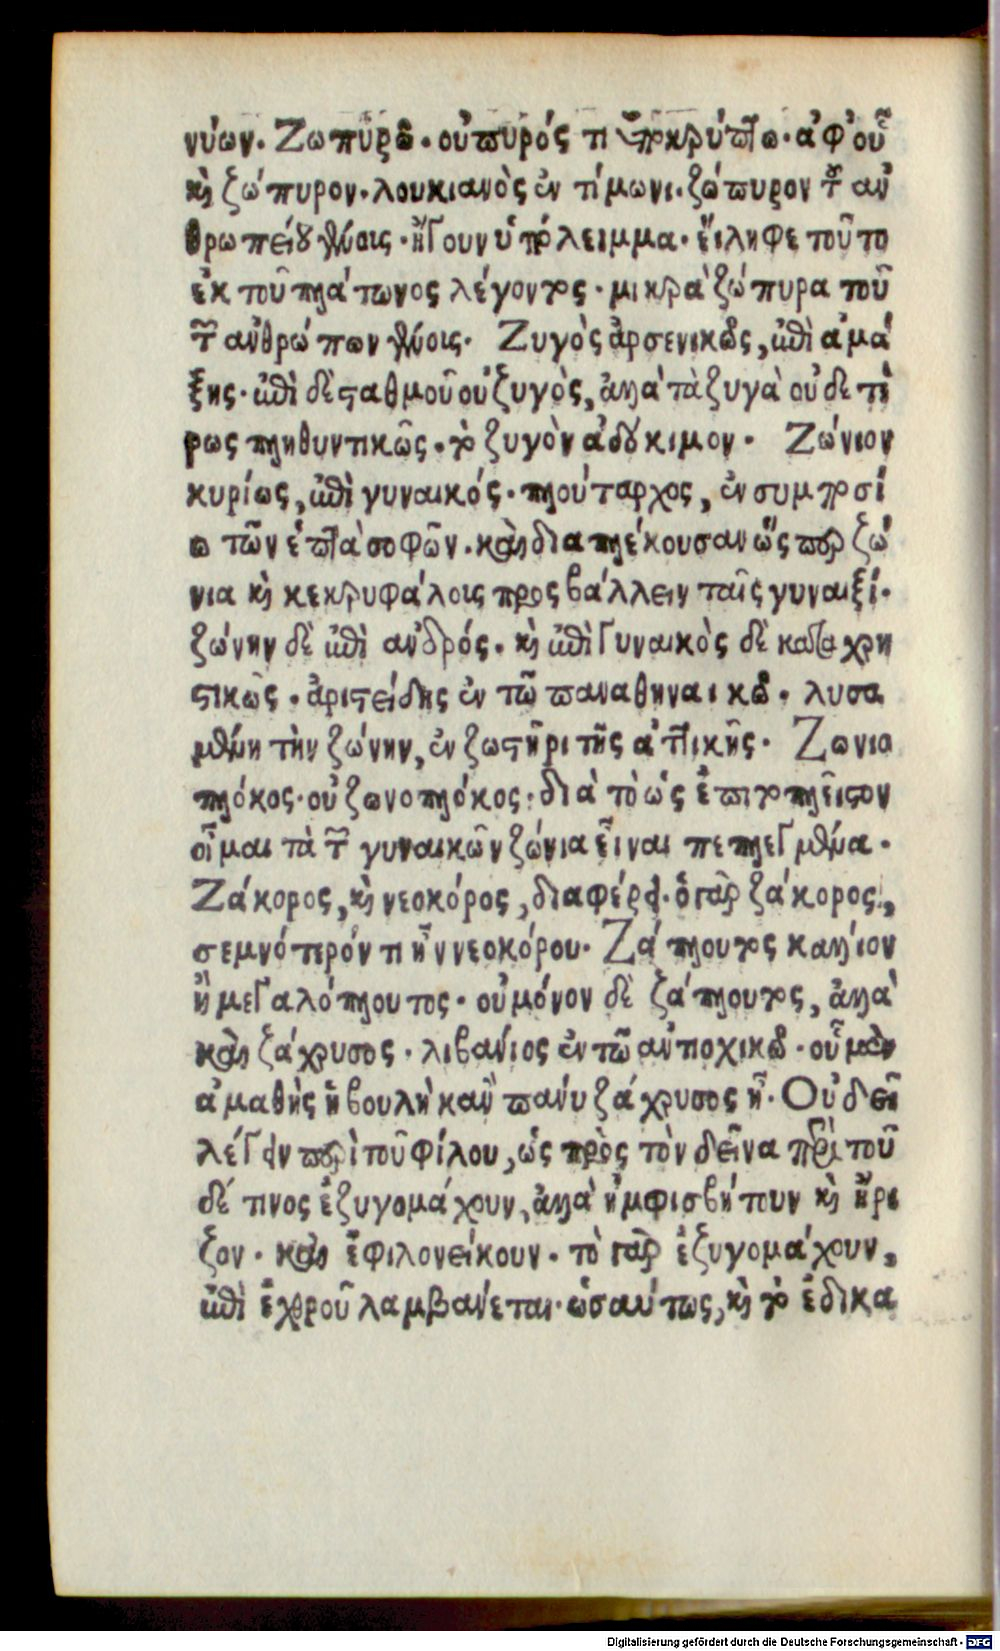 νύων. Ζωπυρῶ. οὐ πυρός τι ὑποκρύπτω. ἀφ' οὗ
καὶ ζώπυρον. λουκιανὸς ἐν τίμωνι. ζώπυρον τῶν ἀν
θρωπείου γένοις. ἤγουν ὑπόλειμμα. εἴληφε τοῦτο
ἐκ τοῦ πλάτωνος λέγοντος. μικρὰ ζώπυρα τοῦ
τῶν ἀνθρώπων γένοις. Ζυγὸς ἀρσενικῶς, ἐπὶ ἁμά
ξης. ἐπὶ δὲ σταθμοῦ οὐ ζυγὸς, ἀλλὰ τὰ ζυγὰ οὐδετέ
ρως πληθυντικῶς. τὸ ζυγὸν ἀδόκιμον. Ζώνιον
κυρίως, ἐπὶ γυναικός. πλούταρχος, ἐν συμποσί
ω τῶν ἑπτὰ σοφῶν. καὶ διαπλέκουσαν ὥσπερ ζώ
νια καὶ κεκρυφάλοις προσβάλλειν ταῖς γυναιξί.
ζώνην δὲ ἐπὶ ἀνδρός. καὶ ἐπὶ γυναικὸς δὲ καταχρη
στικῶς. ἀριστείδης ἐν τῶ παναθηναικῶ. λυσα
μένη τὴν ζώνην, ἐν ζωστῆρι τῆς ἀττικῆς. Ζωνιο
πλόκος. οὐ ζωνοπλόκος. διὰ τὸ ὡς ἐπιτοπλεῖστον
οἶμαι τὰ τῶν γυναικῶν ζώνια εἶναι πεπλεγμένα.
Ζάκορος, καὶ νεοκόρος, διαφέρει. ὁ γὰρ ζάκορος,
σεμνότερόν τι ἦν νεοκόρου. Ζάπλουτος κάλλιον
ἢ μεγαλόπλουτος. οὐ μόνον δὲ ζάπλουτος, ἀλλὰ
καὶ ζάχρυσος. λιβανίος ἐν τῶ ἀντιοχικῶ. οὗ μὲν
ἀμαθὴς ἡ βουλὴ κἂν πάνυ ζάχρυσος ἦ. Οὐ δεῖ
λέγειν περὶ τοῦ φίλου, ὡς πρὸς τὸν δεῖνα περὶ τοῦ
δέ τινος ἐζυγομάχουν, ἀλλὰ ἠμφισβήτουν καὶ ἤρι
ζον. καὶ ἐφιλονείκουν. τὸ γὰρ ἐζυγομάχουν,
ἐπὶ ἐχθροῦ λαμβάνεται. ὡσαύτως, καὶ τὸ ἐδικα
Digitalisierung gefördert durch die Deutsche Forschungsgemeinschaft - DFG